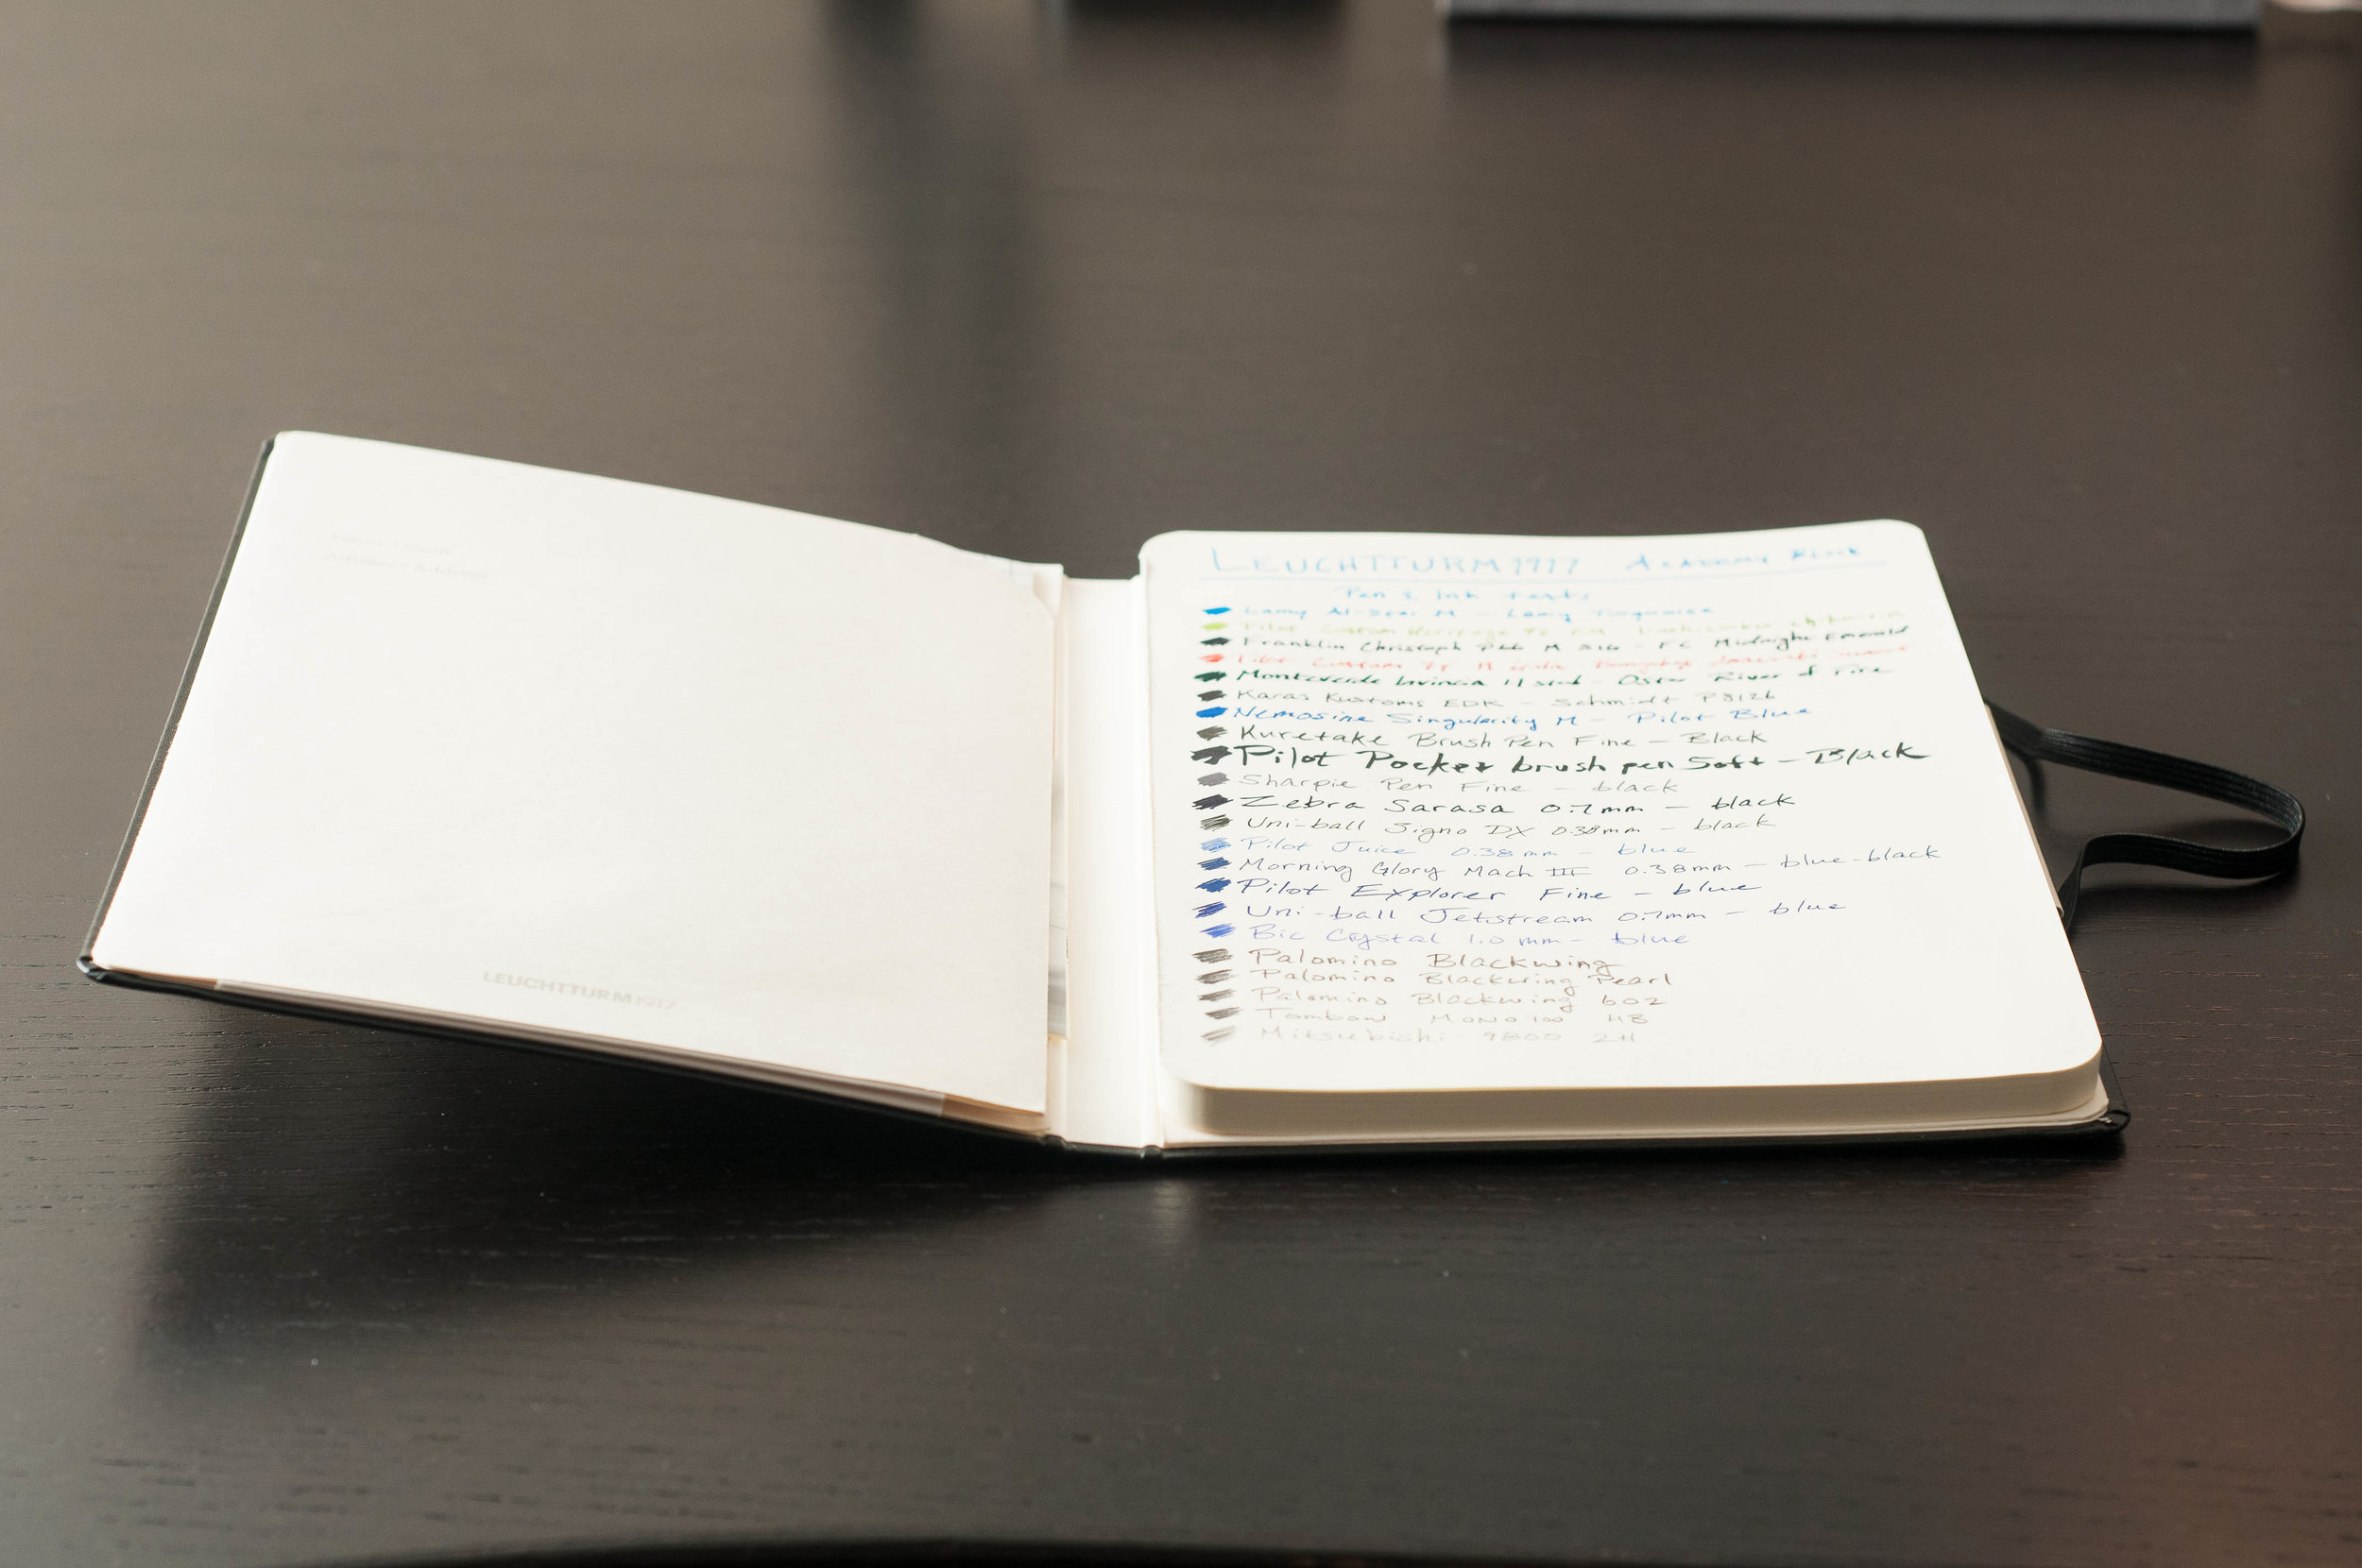 LEUCHTTURM1917
LEUCHTTURM1917 Academy Block
Pen & Ink tests
Lamy Al-Star M - Lamy Turquoise
Pilot Custom Heritage 92 FM
Franklin Christoph M - FC Midnight Emerald
Pilot Custom M
Monteverde Invincia II stub - River of Fire
Karas Kustoms EDK - Schmidt P8126
Nemosine Singularity M - Pilot Blue
Kuretake Brush Pen Fine - Black
Pilot Pocket brush pen Soft - Black
Sharpie Pen Fine - black
Zebra Sarasa 0.7mm - black
Uni-ball Signo DX 0.38mm - black
Pilot Juice 0.38mm - blue
Morning Glory Mach III 0.38mm - blue-black
Pilot Explorer Fine - blue
Uni-ball Jetstream 0.7mm - blue
Bic Crystal 1.0mm - blue
Palomino Blackwing
Palomino Blackwing Pearl
Palomino Blackwing 602
Tombow MONO 100 HB
Mitsubishi 9800 2H